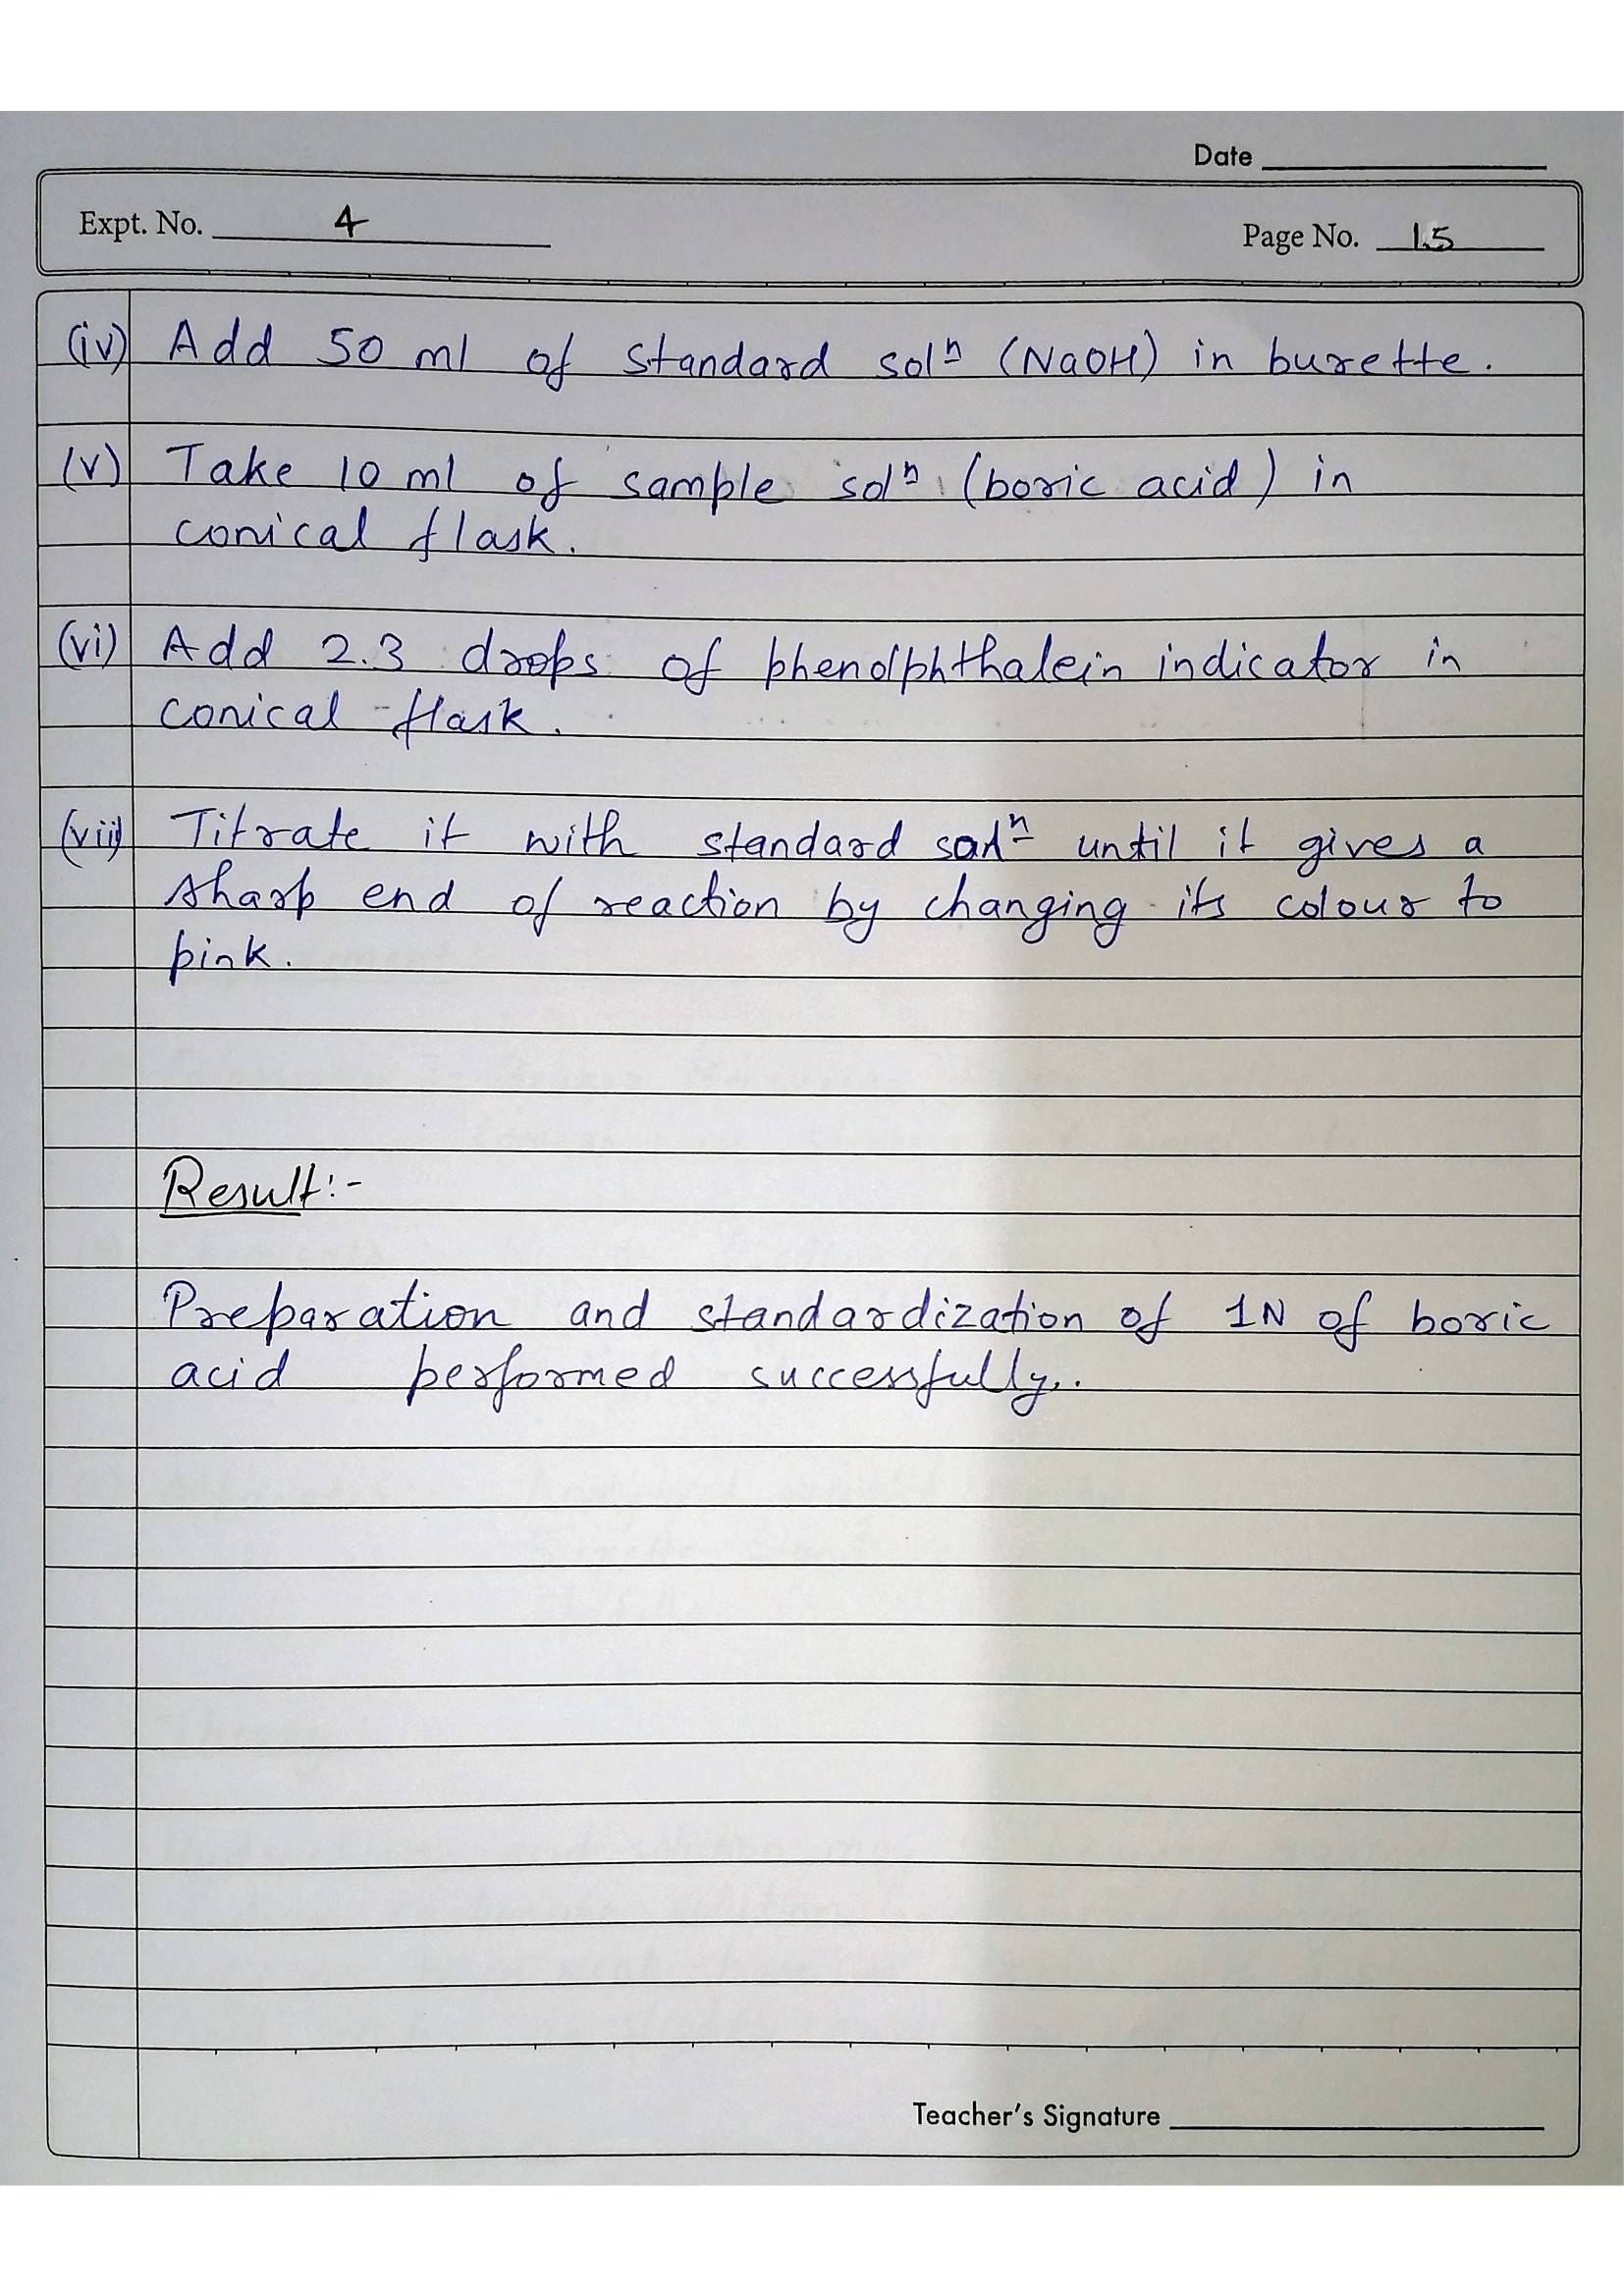 Date
Expt. No. 4
Page No. 15
(iv) Add 50 ml of standard solⁿ (NaOH) in burette.
(v) Take 10 ml of sample solⁿ (boric acid) in
conical flask.
(vi) Add 2.3 drops of phenolphthalein indicator in
conical flask.
(vii) Titrate it with standard solⁿ until it gives a
sharp end of reaction by changing its colour to
pink.
Result:-
Preparation and standardization of 1N of boric
acid performed successfully..
Teacher's Signature